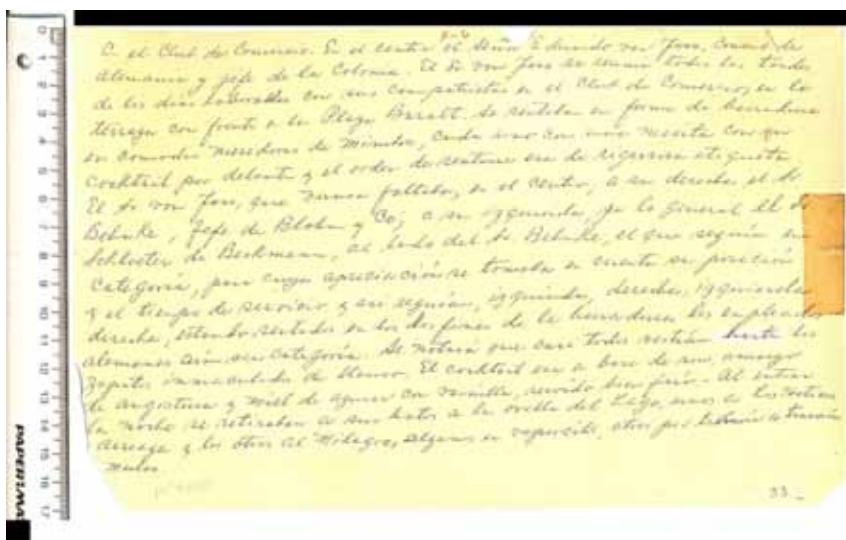 8-6
C. el Club de Comercio. En el centro el Señor Eduardo von Jess, Consul de
Alemania y jefe de la Colonia. El Sr von Jess se reunia todas las tardes
de los dias laborables con sus compatriotas en el Club de Comercio, en la
terraza con frente a la Plaza Baralt. Se sentaban en forma de herradura
en comodas mecedoras de mimbre, cada uno con una mesita con su
cocktail por delante y el orden de sentarse era de rigurosa etiqueta.
El Sr von Jess, que nunca faltaba, en el centro, a su derecha el Sr
Behnke, Jefe de Blohm y Co; a su izquierda, por lo general el Sr
Schloeter de Beckmann, al lado del Sr Behnke, el que seguia en
categoria, para cuya apreciación se tomaba en cuenta su posición
y el tiempo de servicio y asi seguian, izquierda, derecha, izquierda
derecha, estando sentados en los dos finales de la herradura los empleados
alemanes aún sin categoria. Se notará que casi todos vestian hasta los
zapatos inmaculados de blanco. El cocktail era a base de ron, amargo
de angostura y miel de azucar con vainilla, servido bien frio - Al entrar
la noche se retiraban a sus hatos a la orilla del Lago, unos a los Haticos
Arreaga y los otros al Milagro, algunos en vaporcito, otros por tranvia
mulas
33.-